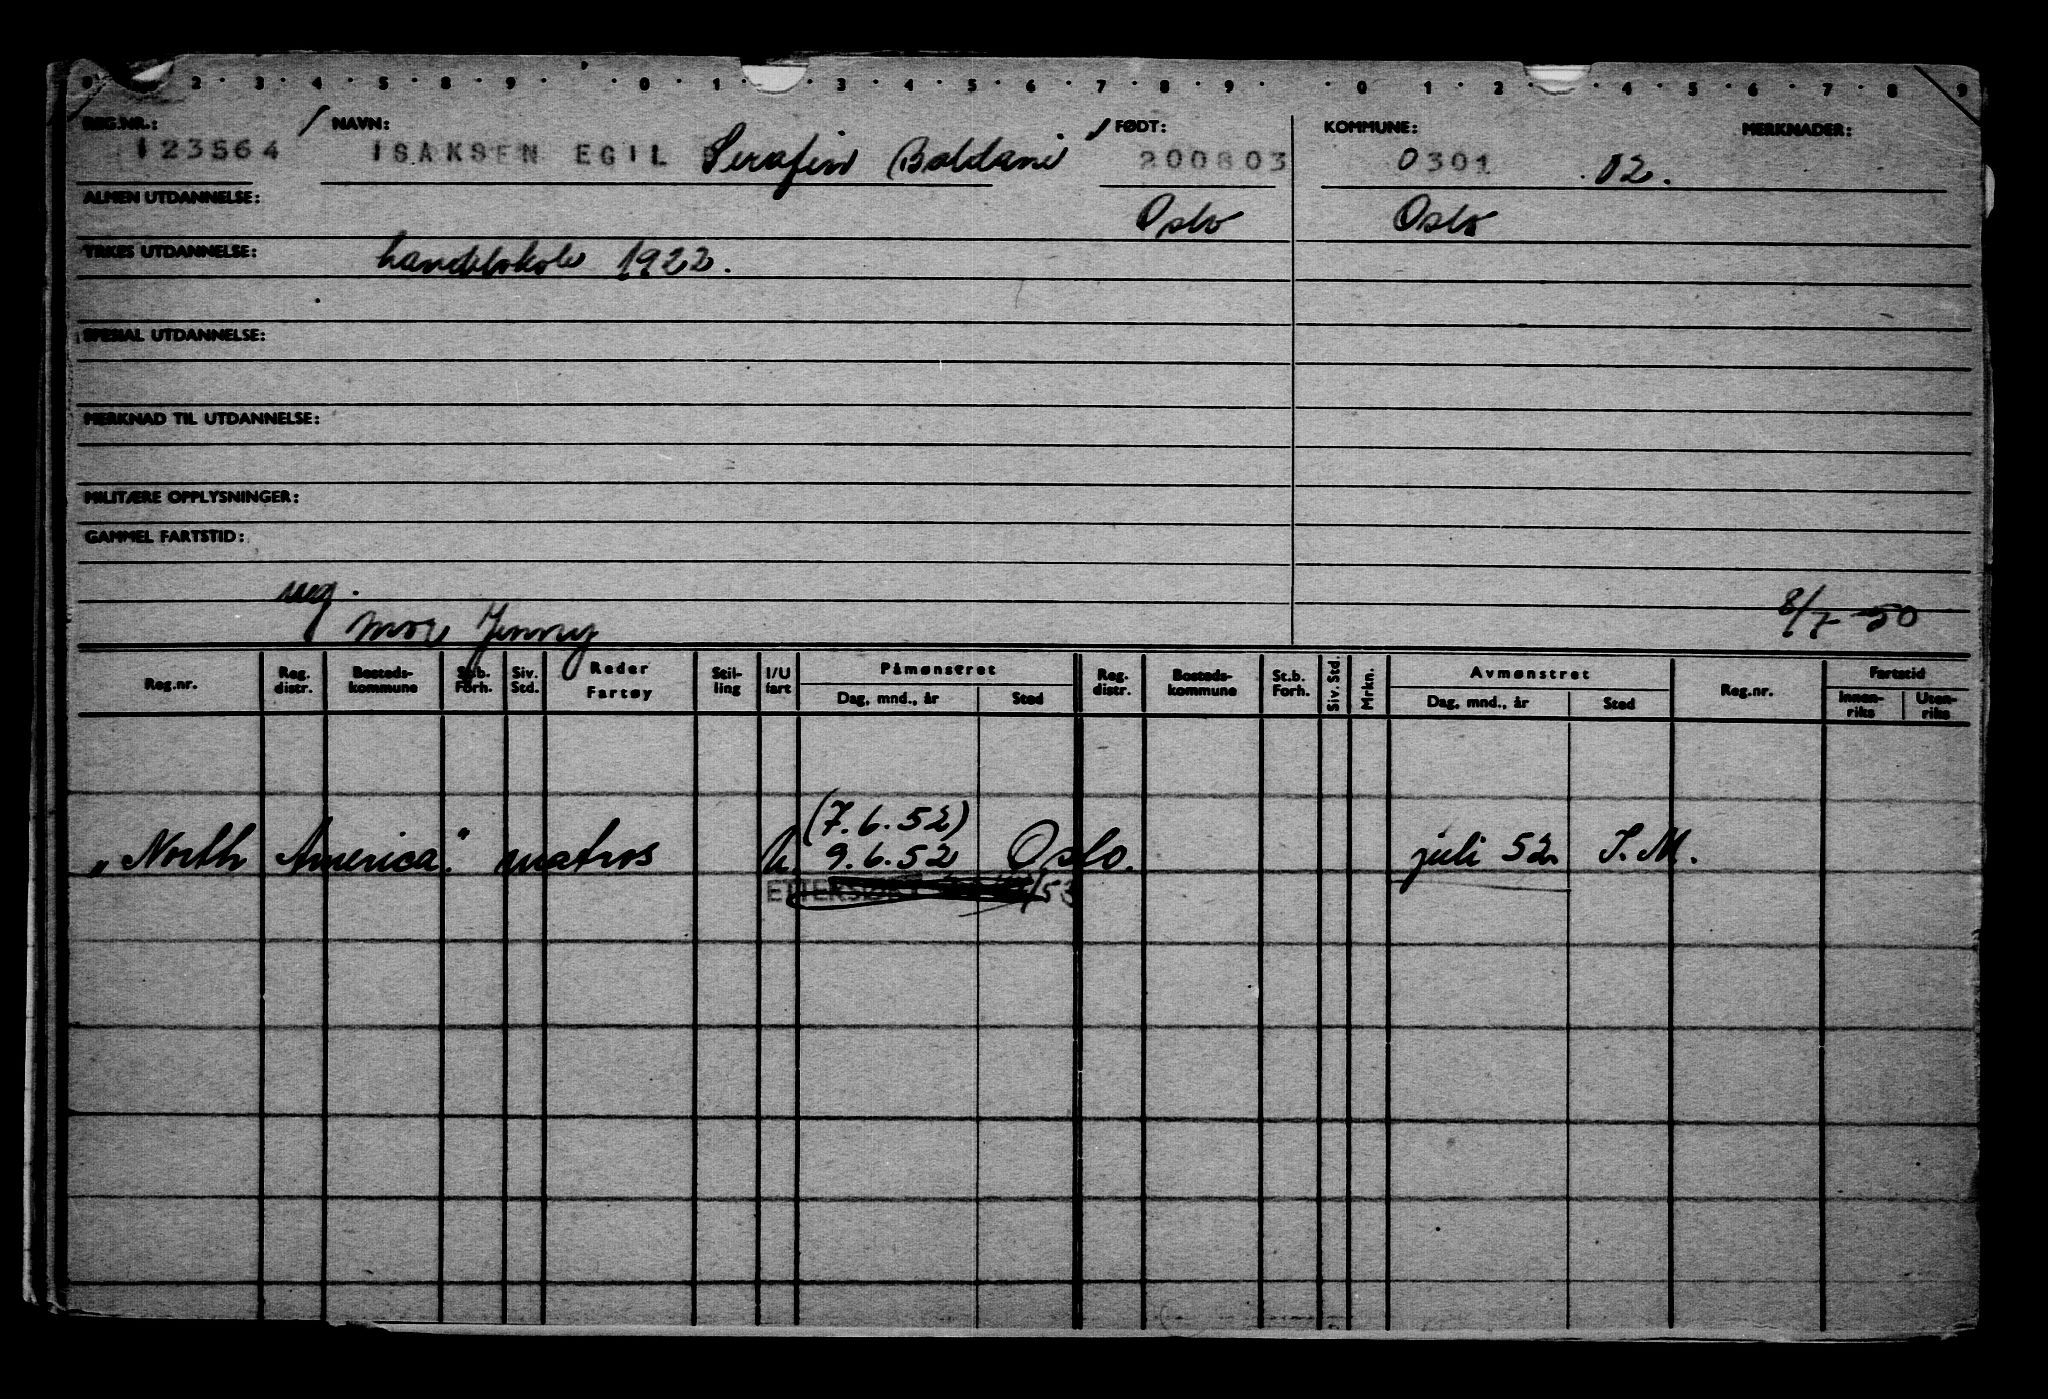 0 2 3 4 5 8 9 0 1 3 4 5 6 7 8 9 0 1 2 4 5 6 7 8 9
REG.NR.: NAVN: FØDT: KOMMUNE: MERKNADER:
123564 ISAKSEN EGIL Serafin 200803 0301 02.
ALMEN UTDANNELSE: Oslo Oslo
YRKES UTDANNELSE: handelskole 1922.
SPESIAL UTDANNELSE:
MERKNAD TIL UTDANNELSE:
MILITÆRE OPPLYSNINGER:
GAMMEL FARTSTID:
neg.
mor Jenny 8/7-50
Reg.nr. Reg. distr. Bosteds-kommune St.b. Forh. Siv. Std. Reder Fartøy Stil-ling I/U fart Påmønstret Dag, mnd., år Sted Reg. distr. Bosteds-kommune St.b. Forh. Siv. Std. Mrkn. Avmønstret Dag, mnd., år Sted Reg.nr. Fartstid Innen-riks Uten-riks
(7.6.52)
„North America." matros u. 9.6.52 Oslo. juli 52 S.M.
ETTERSØKT /53